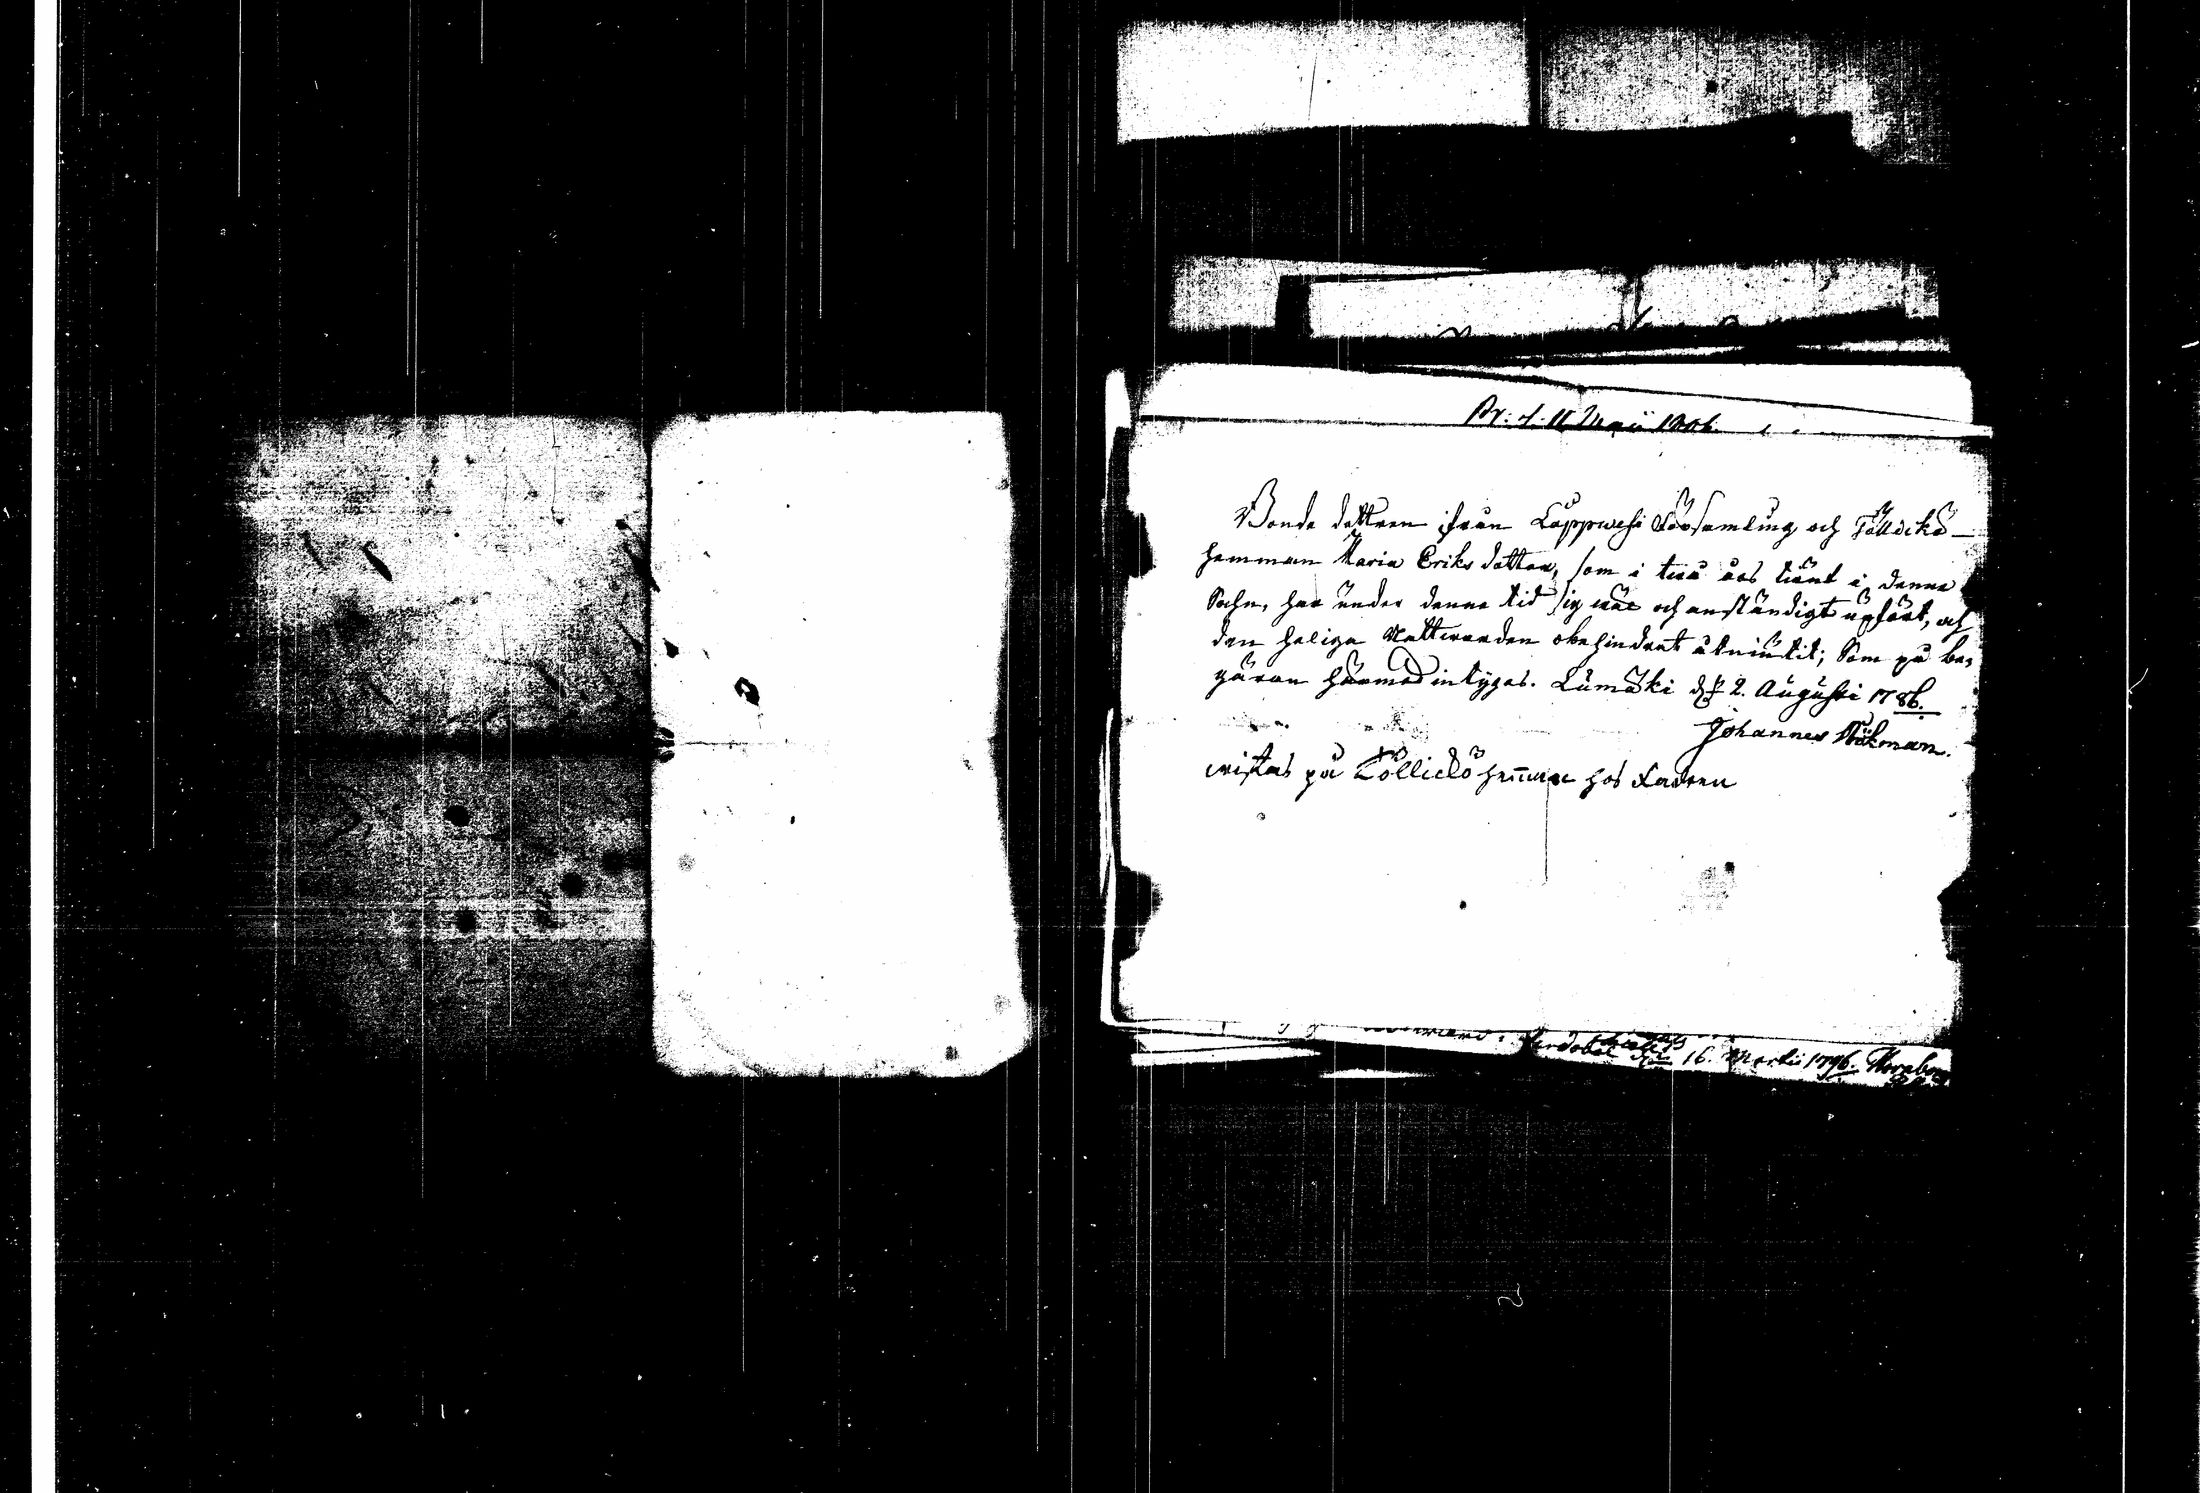 Pr: d. 11 Maji 1806.
Bonde dottren ifrån Lappwesi Församling och Töllickö
hemman Maria Eriks dotter, som i twå års tient i denna
Sochn, har under denna tid sig wäl och anständigt upfört, och
den heliga Nattwarden obehindrat åtniutit; Som på be-
gäran härmed intygas. Lumäki d. 2. Augusti 1786.
Johannes Nökman.
wistas på Töllickö hemman hos Fadren
16. Martii 1796.